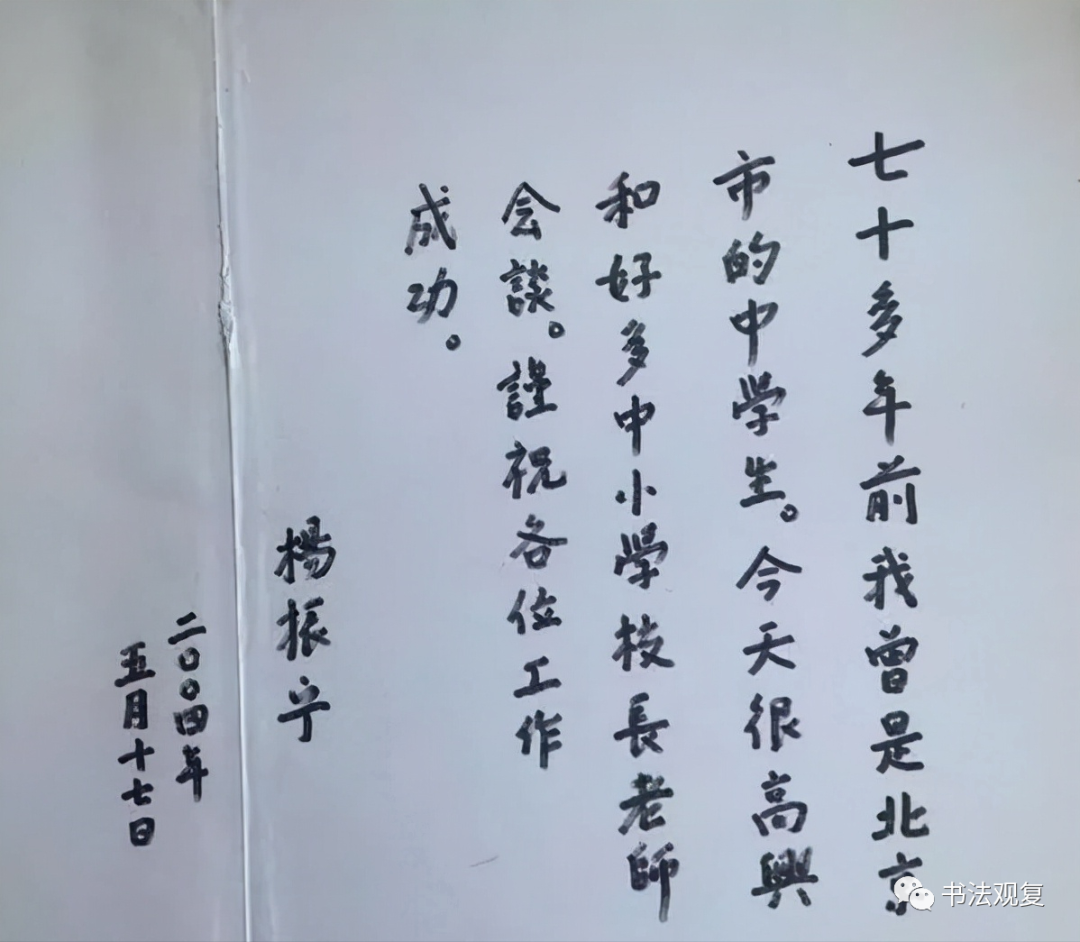 七十多年前我曾是北京
市的中学生。今天很高興
和好多中小学校長老師
会談。謹祝各位工作
成功。
楊振宁
二〇〇四年
五月十七日
书法观复